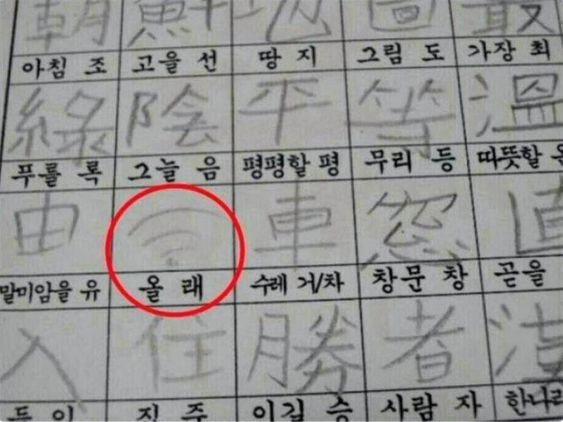 朝 鮮 地 圖 最
아침 조 고을 선 땅 지 그림 도 가장 최
綠 陰 平 等 溫
푸를 록 그늘 음 평평할 평 무리 등 따뜻할
由 車 窓 直
말미암을 유 올 래 수레 거/차 창문 창 곧을
入 住 勝 者
이길 승 사람 자 한나라